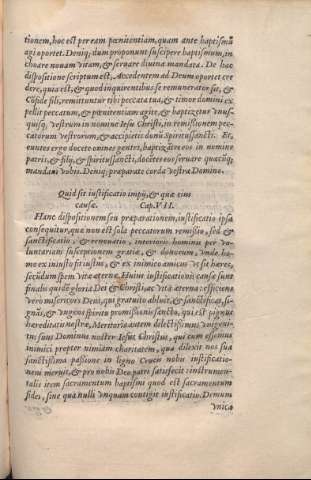 tionem, hoc est per eam pœnitentiam, quam ante baptismũ
agi oportet. Deniq; dum proponunt suscipere baptismum, in
choare nouam vitam, & seruare diuina mandata. De hac
dispositione scriptum est, Accedentem ad Deum oportet cre
dere, quia est, & quod inquirentibus se remunerator sit, &
Cõfide fili, remittuntur tibi peccata tua, & timor domini ex
pellit peccatum, & pœnitentiam agite, & baptizetur vnus
quisq; vestrum in nomine Iesu Christi, in remissionem pec-
catorum vestrorum, & accipietis donũ Spiritussancti. Et,
euntes ergo docete omnes gentes, baptizãtes eos in nomine
patris, & filij, & spiritussancti, docẽtes eos seruare quæcũq;
mandaui vobis. Deniq; præparate corda vestra Domino.
Quid sit iustificatio impij, & quæ eius
causæ. Cap. VII.
Hanc dispositionem seu præparationem, iustificatio ipsa
consequitur, quæ non est sola peccatorum remissio, sed &
sanctificatio, & renouatio, interioris hominis per vo-
luntariam susceptionem gratiæ, & donorum, vnde ho-
mo ex iniusto fit iustus, & ex inimico amicus, vt sit hæres,
secũdum spem vitæ æternæ. Huius iustificationis causæ sunt
finalis quidẽ gloria Dei & Christi, ac vita æterna: efficiens
vero misericors Deus, qui gratuito abluit, & sanctificat, si-
gnãs, & vngens spiritu promissionis sancto, qui est pignus
hæreditatis nostræ, Meritoria autem dilectissimus vnigeni-
tus suus Dominus noster Iesus Christus, qui cum essemus
inimici propter nimiam charitatem, qua dilexit nos sua
sanctissima passione in ligno Crucis nobis iustificatio-
nem meruit, & pro nobis Deo patri satisfecit: instrumen-
talis item sacramentum baptismi quod est sacramentum
fidei, sine qua nulli vnquam contigit iustificatio. Demum
vnica